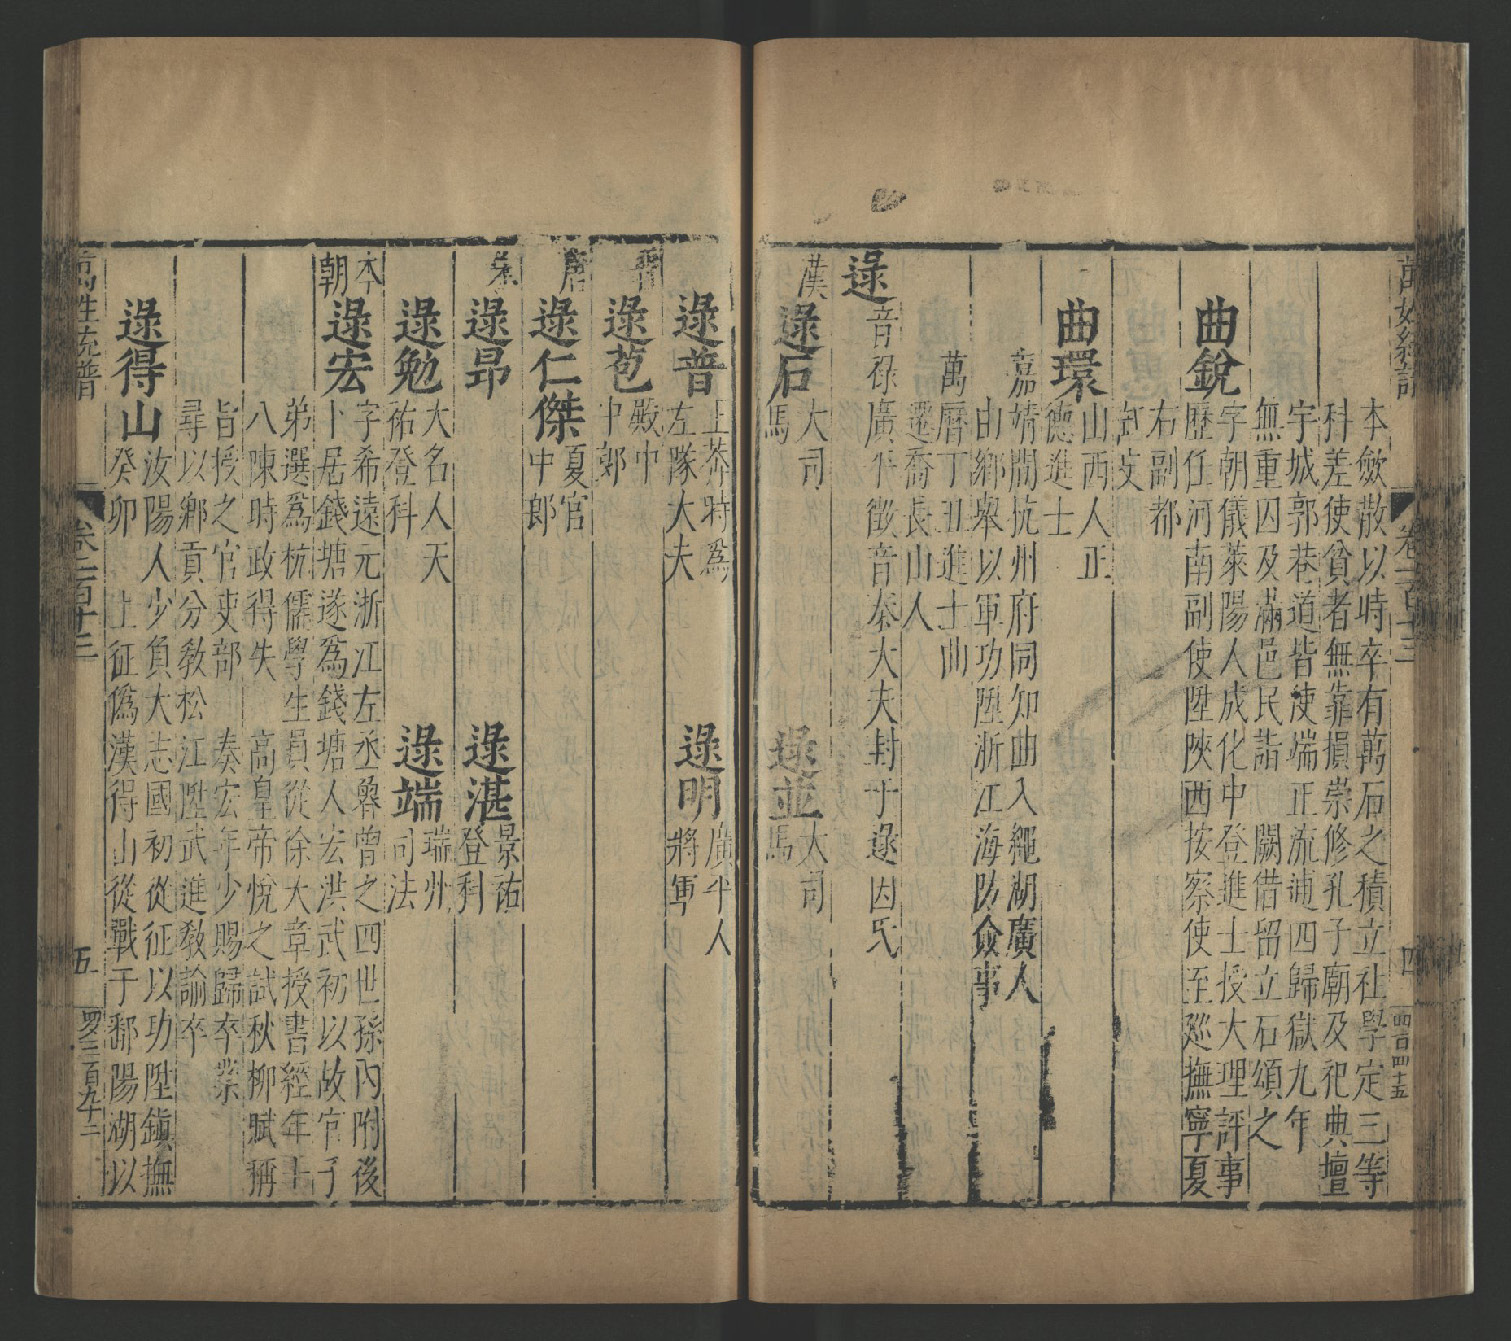 本斂散以時卒有萬石之積立社學定三等
科差使貧者無靠損崇修孔子廟及祀典壇
宇城郭巷道皆使端正流逋四歸獄九年
無重囚及滿邑民詣闕借留立石頌之
曲銳
字朝儀萊陽人成化中登進士授大理評事
歷任河南副使陞陝西按察使至廵撫寧夏
右副都
曲環
山西人正
德進士
嘉靖間杭州府同知曲入繩湖廣人
由鄉舉以軍功陞浙江海防僉事
萬曆丁丑進士曲
遷喬長山人
逯
音祿
廣平徵音奉大夫封于逯因氏
漢
逯石
大司
馬
逯並
大司
馬
卷一百十三
四
四百四十五
逯普
王莽時爲
左隊大夫
逯明
廣平人
將軍
逯苞
殿中
中郎
唐
逯仁傑
夏官
中郎
宋
逯昂
逯湛
景祐
登科
逯勉
大名人天
祐登科
逯端
瑞州
司法
本朝
逯宏
字希遠元浙江左丞魯曾之四世孫內附後
卜居錢塘遂爲錢塘人宏洪武初以故官子
弟選爲杭儒學生員從徐大章授書經年十
八陳時政得失高皇帝悅之試秋柳賦稱
旨授之官吏部奏宏年少賜歸卒業
尋以鄉貢分敎松江陞武進敎諭卒
逯得山
汝陽人少負大志國初從征以功陞鎭撫
癸卯上征僞漢得山從戰于鄱陽湖以
萬姓統譜
卷一百十三
五
四百九十二